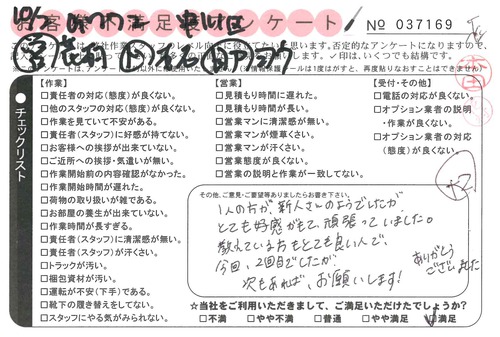 お客様不満足アンケート
No 037169
【作業】
□責任者の対応(態度)が良くない。
□他のスタッフの対応(態度)が良くない。
□作業を見ていて不安がある。
□責任者(スタッフ)に好感が持てない。
□お客様への挨拶が出来ていない。
□ご近所への挨拶・気遣いが無い。
□作業開始前の内容確認がなかった。
□作業開始時間が遅れた。
□荷物の取り扱いが雑である。
□お部屋の養生が出来ていない。
□作業時間が長すぎる。
□責任者(スタッフ)に清潔感が無い。
□責任者(スタッフ)が汗くさい。
□トラックが汚い。
□梱包資材が汚い。
□運転が不安(下手)である。
□靴下の履き替えをしてない。
□スタッフにやる気がみられない。
【営業】
□見積もり時間に遅れた。
□見積もり時間が長い。
□営業マンに清潔感が無い。
□営業マンが煙草くさい。
□営業マンが汗くさい。
□営業態度が良くない。
□営業の説明と作業が一致してない。
【受付・その他】
□電話の対応が良くない。
□オプション業者の説明
・作業が良くない。
□オプション業者の対応
(態度)が良くない。
チェックリスト
その他、ご意見・ご要望等ありましたらお書き下さい。
1人の方が、新人さんのようでしたが、
とても好感がもて、頑張っていました。
教えている方もとても良い人で、
今回、2回目でしたが、
次もあれば、お願いします!
ありがとう
ございました
☆当社をご利用いただきまして、ご満足いただけたでしょうか?
□不満 □やや不満 □普通 □やや満足 ☑満足